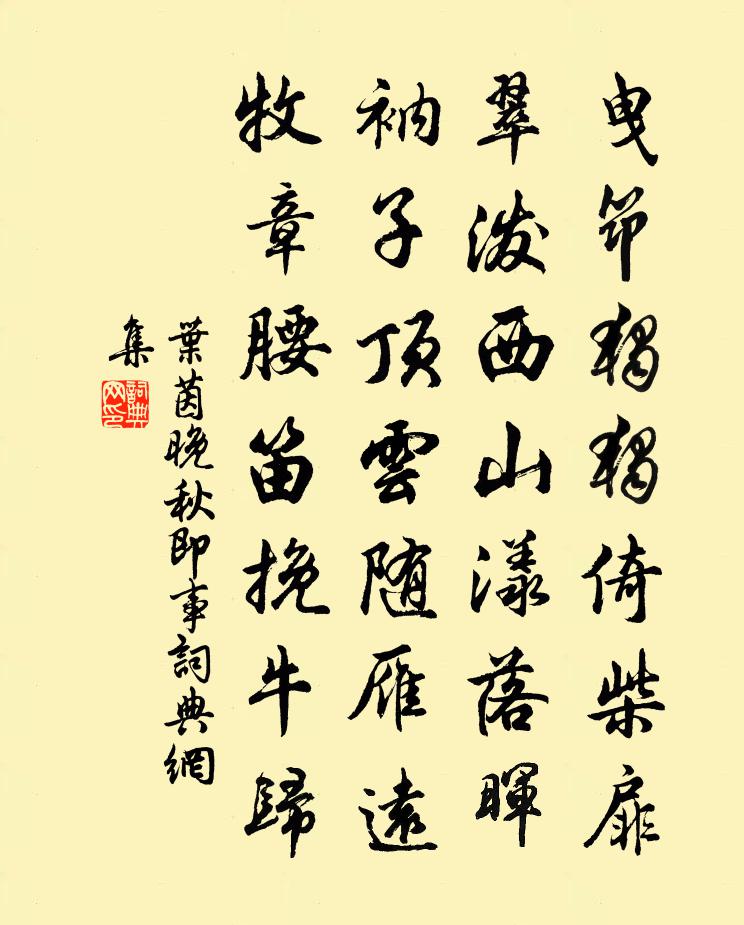 曳筇獨獨倚柴扉
翠潑西山漾落暉
衲子頂雲随雁遠
牧章腰笛挽牛歸
葉茵晚秋即事詞典網
集
詞典网印